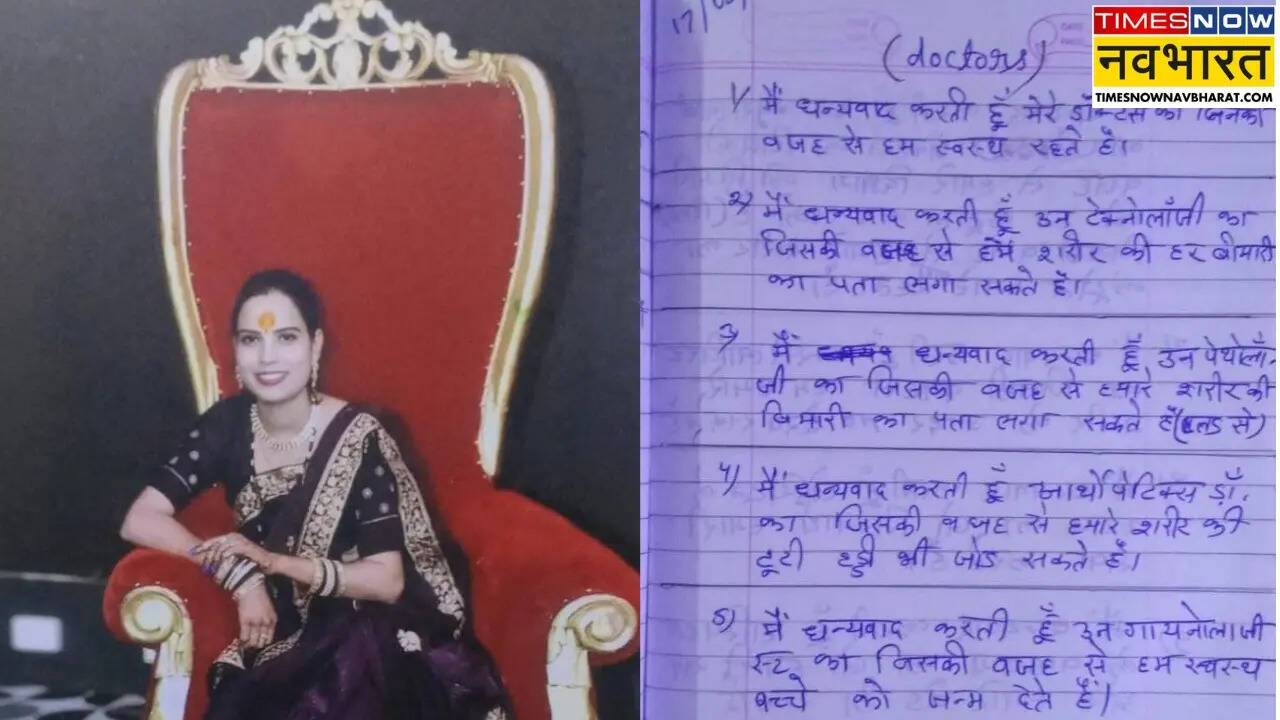 TIMES NOW
नवभारत
TIMESNOWNAVBHARAT.COM
17/
(doctors)
1) मैं धन्यवाद करती हूँ मेरे डॉक्टर्स का जिनकी
वजह से हम स्वस्थ रहते है।
2) मैं धन्यवाद करती हूँ उन टेक्नोलॉजी का
जिसकी वजह से हमें शरीर की हर बीमारी
का पता लगा सकते है।
3) मैं धन्यवाद करती हूँ उन पेथोलॉ-
जी का जिसकी वजह से हमारे शरीर की
बिमारी का पता लगा सकते है (ब्लड से)
4) मैं धन्यवाद करती हूँ आर्थोपेटिक्स डॉ.
का जिसकी वजह से हमारे शरीर की
टूटी हड्डी भी जोड सकते है।
5) मैं धन्यवाद करती हूँ उन गायनोलाजी
स्ट का जिसकी वजह से हम स्वस्थ
बच्चे को जन्म देते हैं।